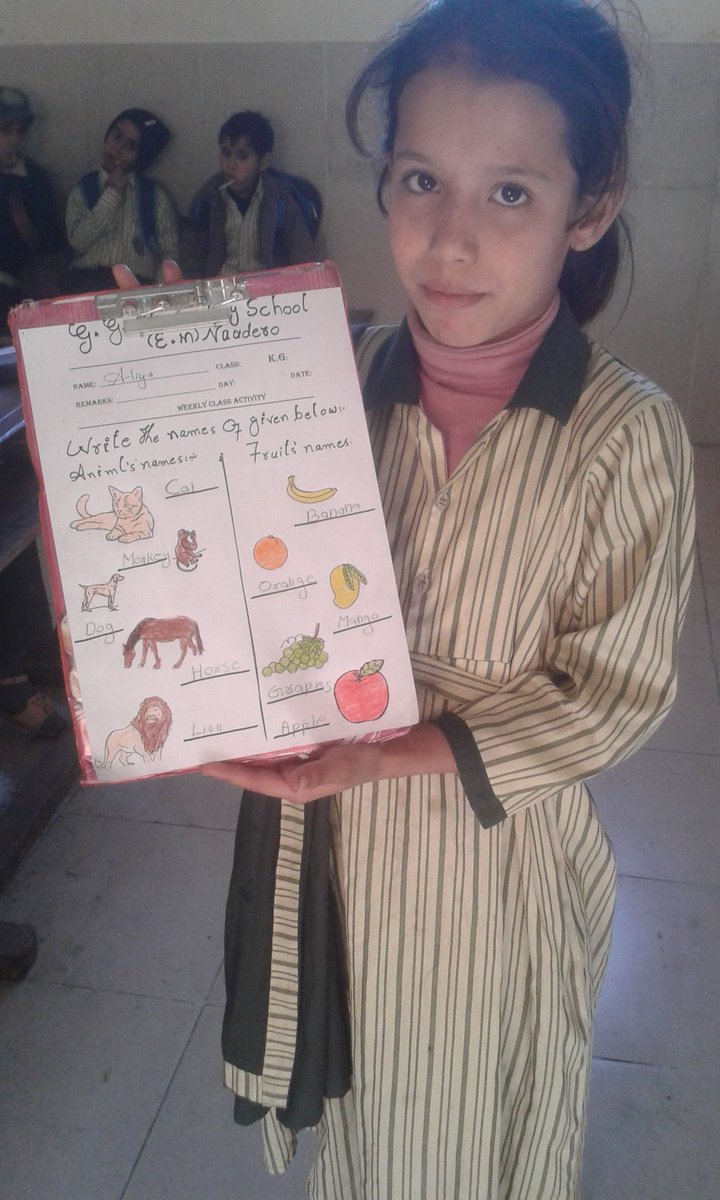 G. G y School
(E.M) Naadero
NAME: Aliya CLASS: K.G:
REMARKS: DAY: DATE:
WEEKLY CLASS ACTIVITY
Write The names Of given below:-
Animl's names:-
Cat
Monkey
Dog
Horse
Lion
Fruit's names.
Banana
Orange
Mango
Grapes
Apple